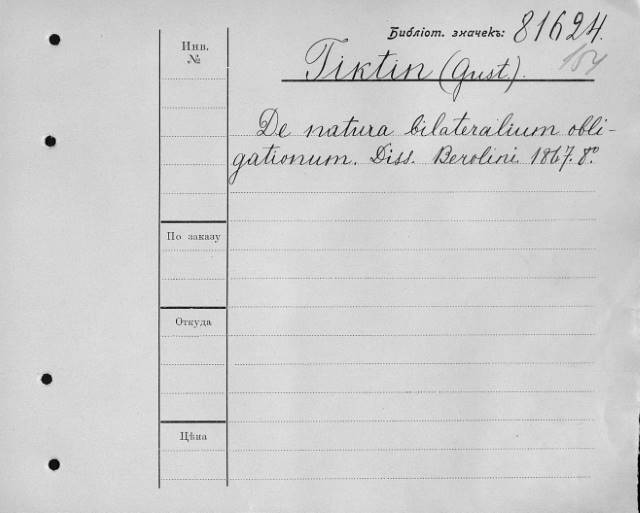 Библіот. значекъ: 81624.
Инв.
№
Tiktin (Gust).
De natura bilateralium obli-
gationum. Diss. Berolini. 1867. 8º.
По заказу
Откуда
Цѣна